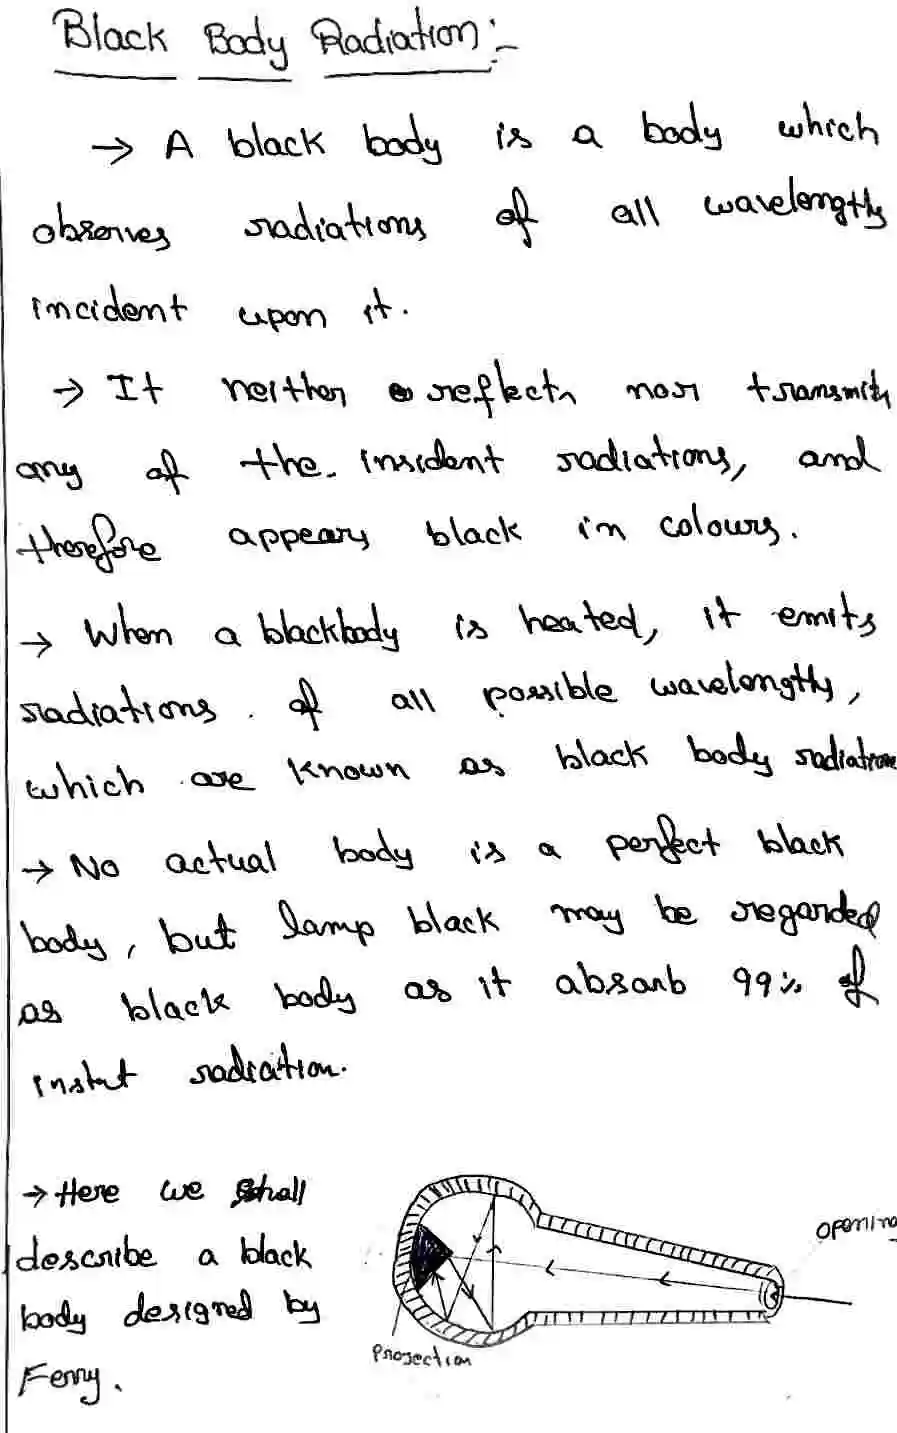 Black Body Radiation:-
→ A black body is a body which
observes radiations of all wavelengths
incident upon it.
→ It neither reflects nor transmits
any of the insident radiations, and
therefore appears black in colours.
→ When a blackbody is heated, it emits
radiations. of all possible wavelengths,
which are known as black body radiation
→ No actual body is a perfect black
body, but lamp black may be regarded
as black body as it absorb 99% of
radiation.
→ Here we shall
describe a black
body designed by
Ferry.
opening
Projection